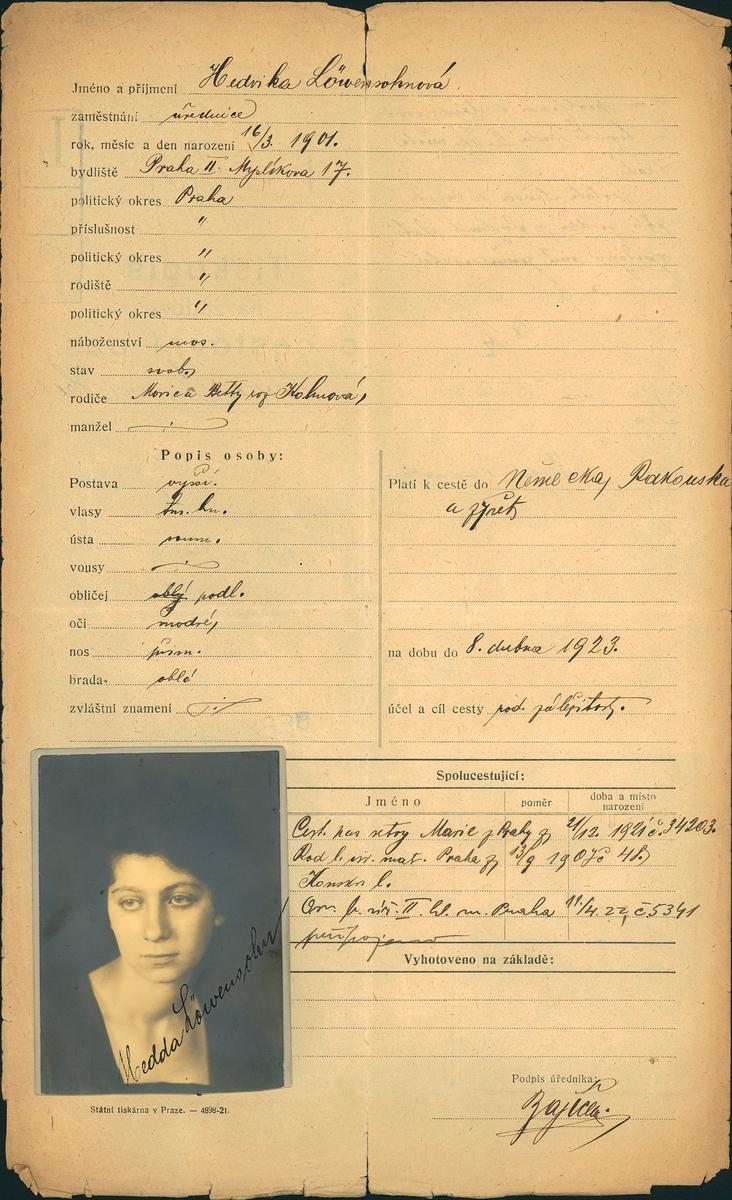 Jméno a příjmení Hedvika Löwensohnová
zaměstnání úřednice
rok, měsíc a den narození 16/3. 1901.
bydliště Praha II. Myslíkova 17.
politický okres Praha
příslušnost "
politický okres "
rodiště "
politický okres "
náboženství mos.
stav svob.
rodiče Moric a Betty roz Kohnová
manžel
Popis osoby:
Postava vyšší.
vlasy tm. hn.
ústa soum.
vousy
obličej oblý podl.
oči modré
nos
brada- oblá
zvláštní znamení
Platí k cestě do Německa, Rakouska
a zpět
na dobu do 8. dubna 1923.
účel a cíl cesty rod. záležitost.
Spolucestující:
Jméno poměr doba a místo narození
Cest. pas sestry Marie z Prahy 21/12. 1921 č. 34203.
Rod. l. isr. mat. Praha 13/9
l.
II. Praha 11/4. 22, č 5341
připojeno
Vyhotoveno na základě:
Podpis úředníka:
Hedda Löwensohn
Státní tiskárna v Praze. — 4898-21.